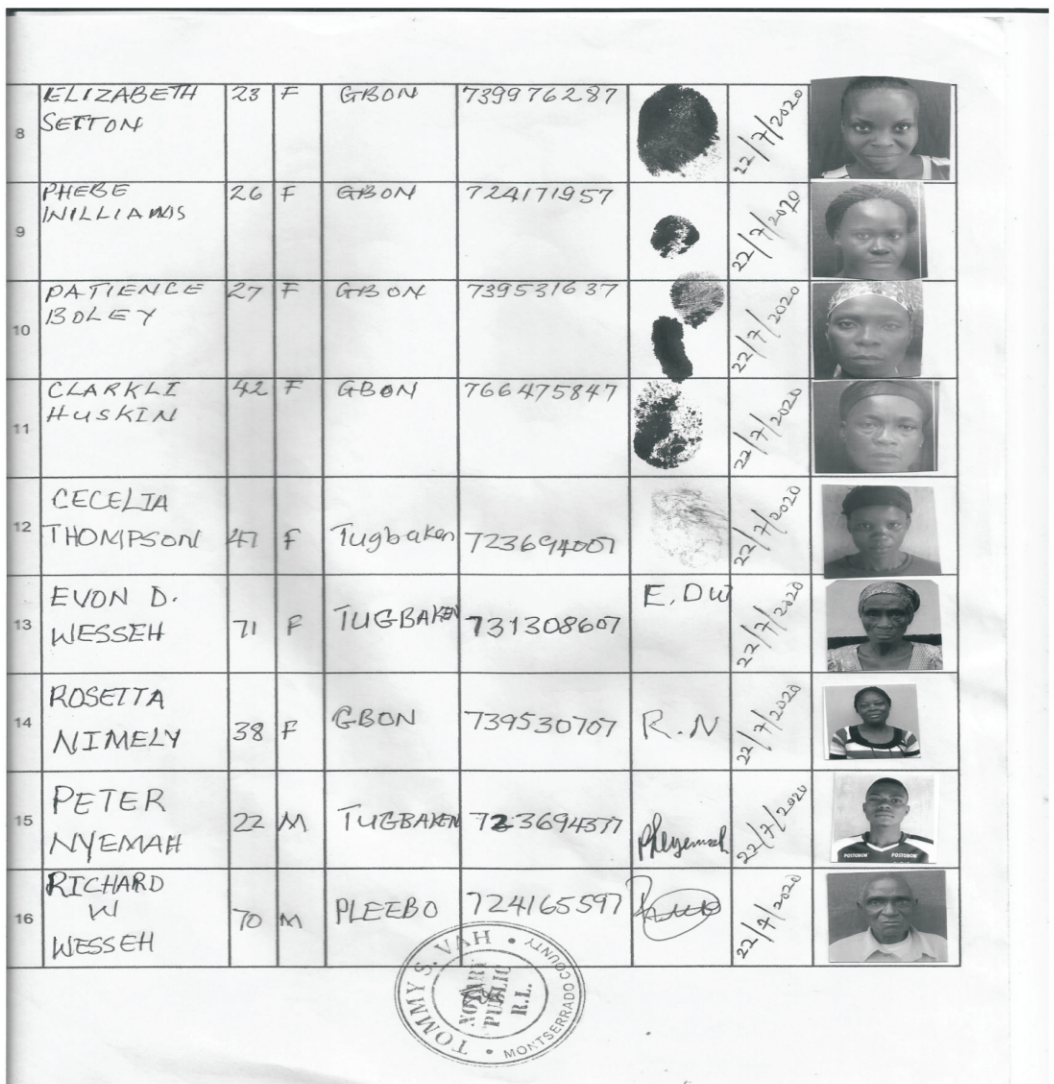 8
ELIZABETH
SETTON
23
F
GBON
739976287
22/7/2020
9
PHEBE
WILLIAMS
26
F
GBON
724171957
22/7/2020
10
PATIENCE
BOLEY
27
F
GBON
739531637
22/7/2020
11
CLARKLI
HUSKIN
42
F
GBON
766475847
22/7/2020
12
CECELIA
THOMPSON
47
F
Tugbaken
723694007
22/7/2020
13
EVON D.
WESSEH
71
F
TUGBAKEN
731308607
E. DW
22/7/2020
14
ROSETTA
NIMELY
38
F
GBON
739530707
R.N
22/7/2020
15
PETER
NYEMAH
22
M
TUGBAKEN
723694377
22/7/2020
POSTOBON POSTOBON
16
RICHARD
W
WESSEH
70
M
PLEEBO
724165597
22/7/2020
TOMMY S. VAH
MONTSERRADO COUNTY
NOTARY
PUBLIC
R.L.